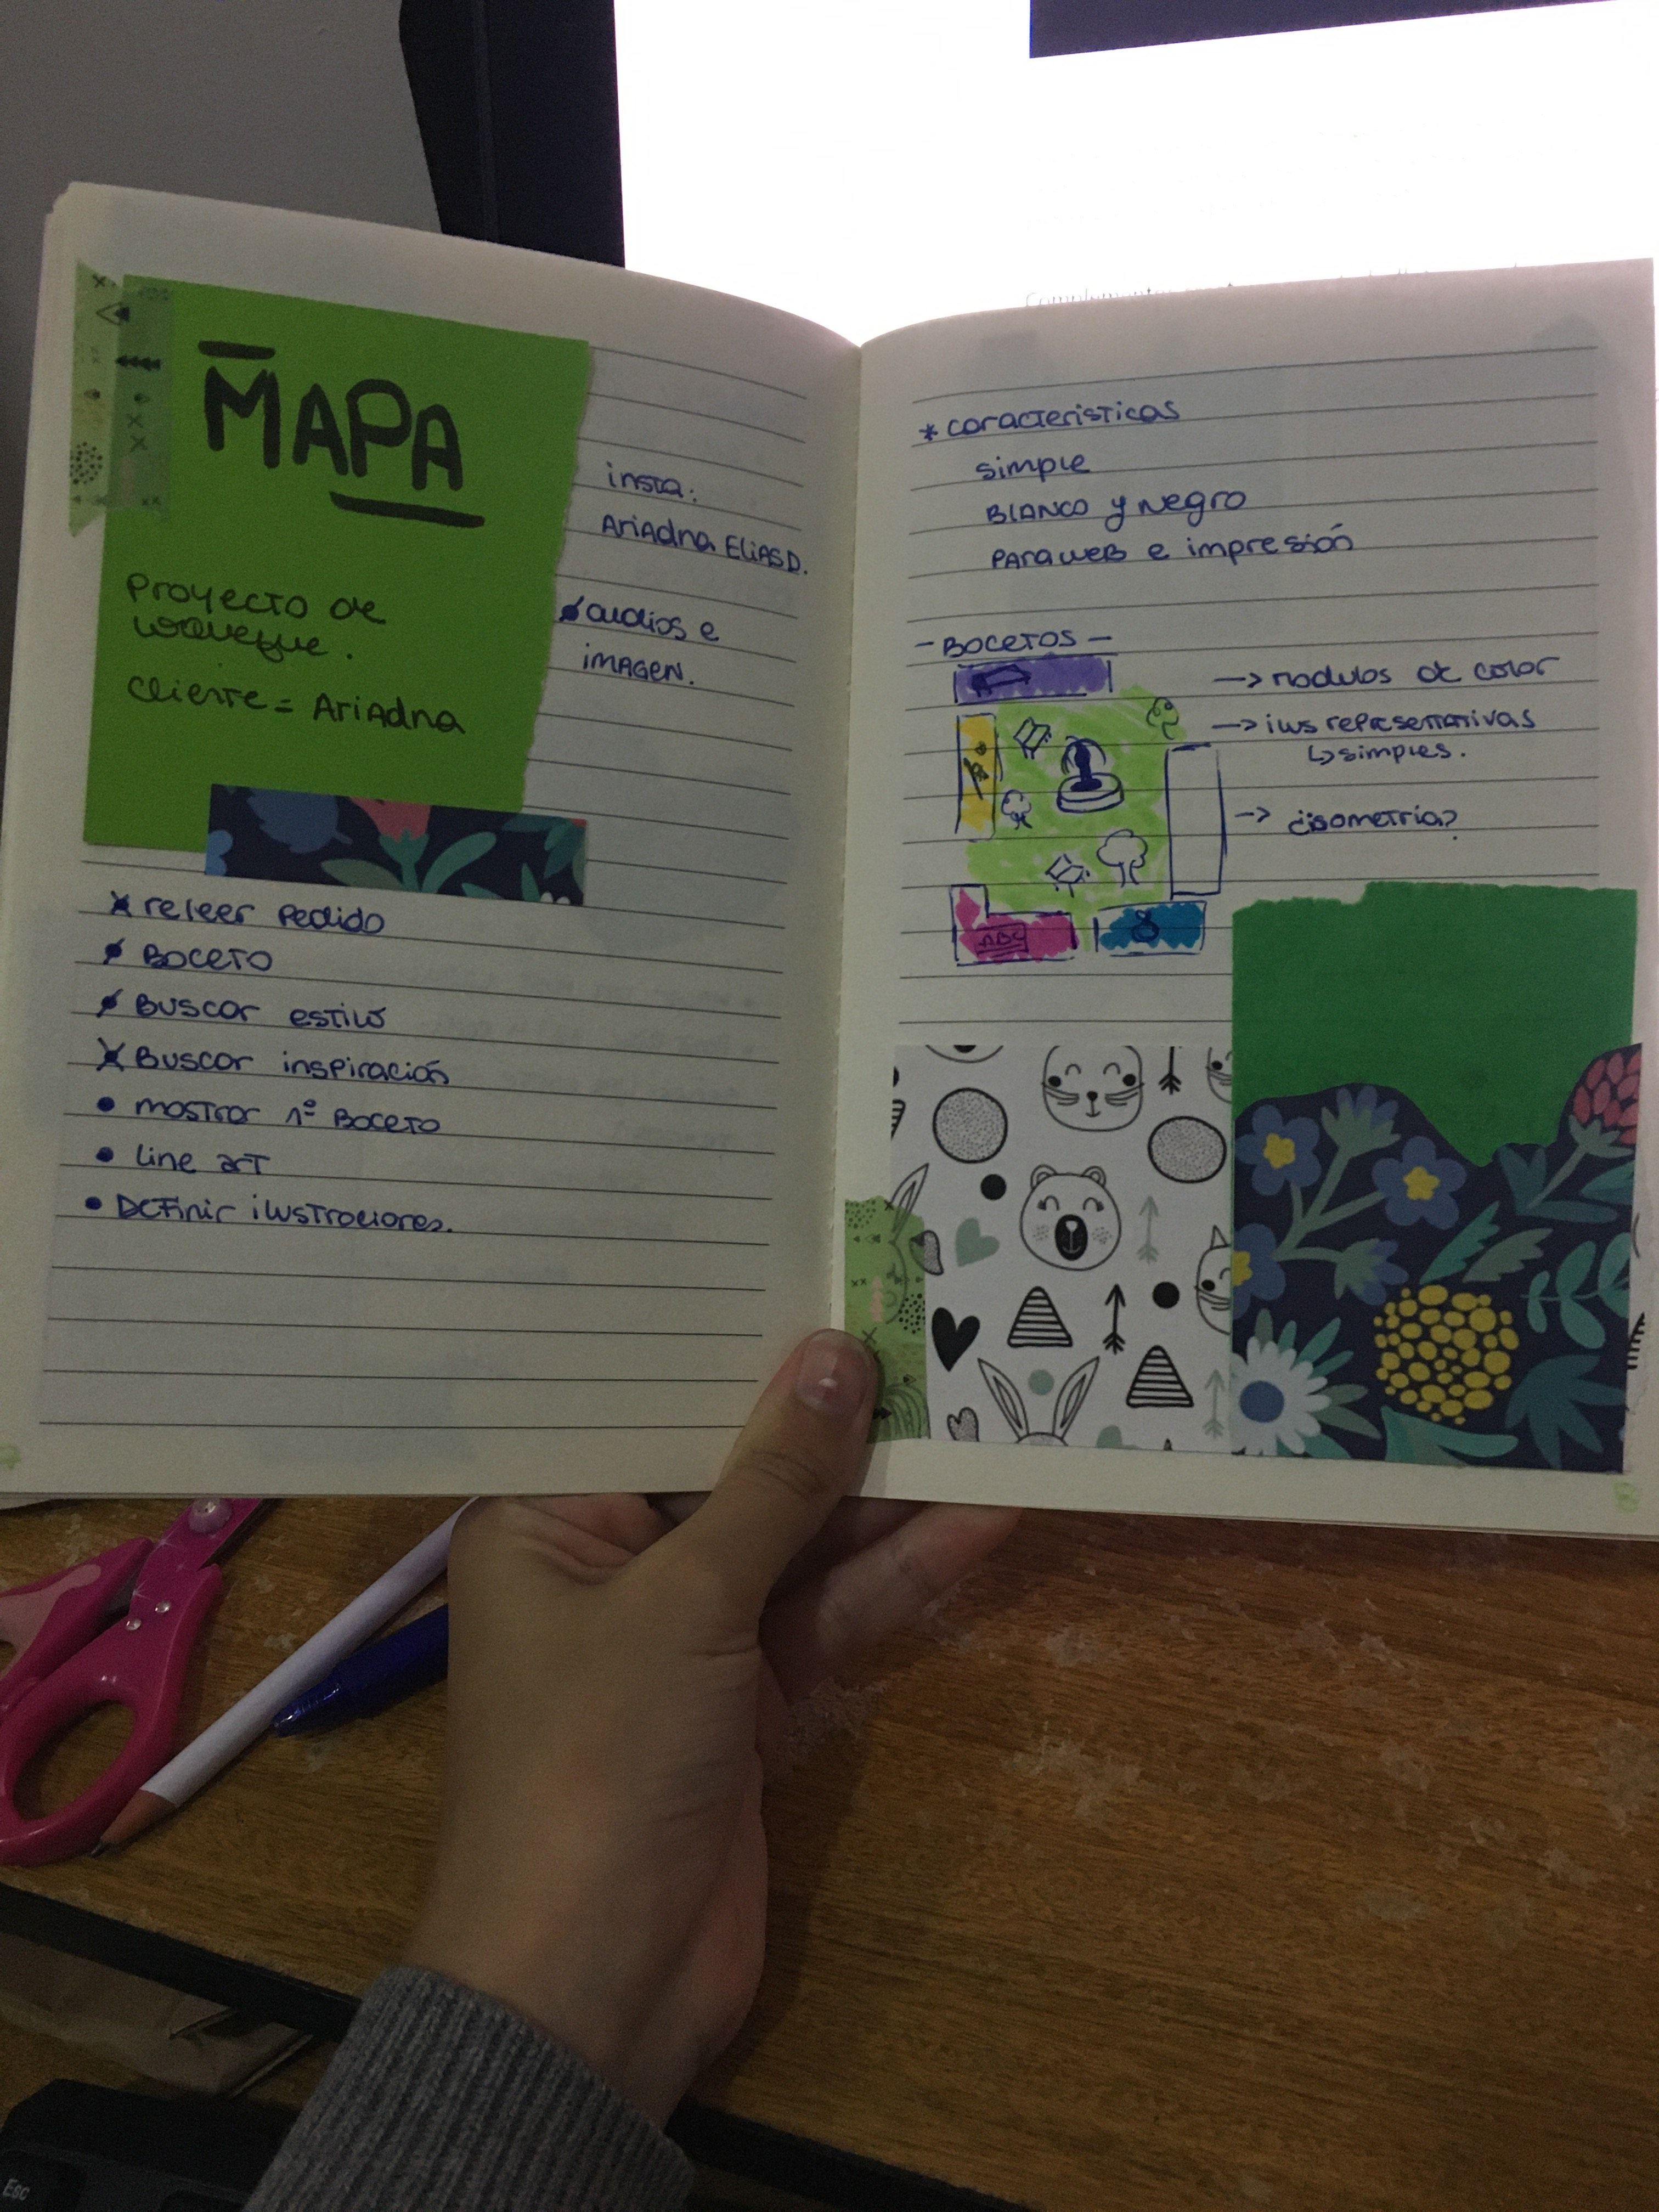 MAPA
Proyecto de
cliente = Ariadna
insta:
Ariadna Elias D.
audios e
imagen.
releer pedido
Boceto
Buscar estilo
Buscar inspiración
mostrar 1º Boceto
line art
Definir ilustraciones.
* caracteristicas
simple
Blanco y Negro
Para web e impresión
- BOCETOS -
→ modulos de color
→ ilus representativas
↳ simples.
→ ¿isometria?
8
Esc